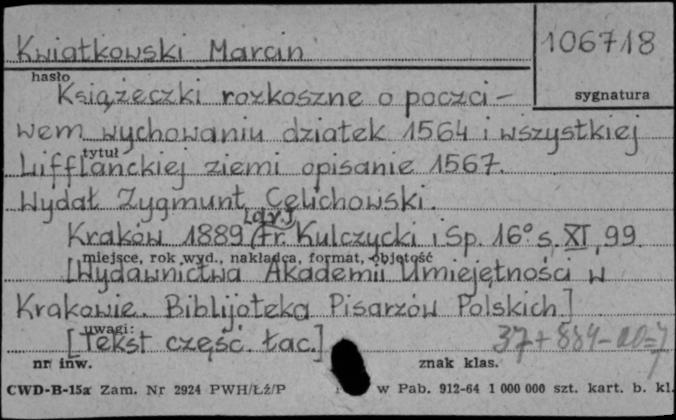 Kwiatkowski Marcin
106718
hasło
sygnatura
Książeczki rozkoszne o poczci-
wem wychowaniu dziatek 1564 i wszystkiej
tytuł
Lifflanckiej ziemi opisanie 1567.
Wydał Zygmunt Celichowski.
[dr.]
Kraków 1889 Fr. Kulczycki i Sp. 16° s. XI, 99.
miejsce, rok wyd., nakładca, format, objętość
[Wydawnictwa Akademii Umiejętności w
Krakowie. Biblijoteka Pisarzów Polskich]
uwagi:
[Tekst część. łac.]
nr inw.
znak klas.
CWD-B-15a Zam. Nr 2924 PWH/Łź/P w Pab. 912-64 1 000 000 szt. kart. b. kl.